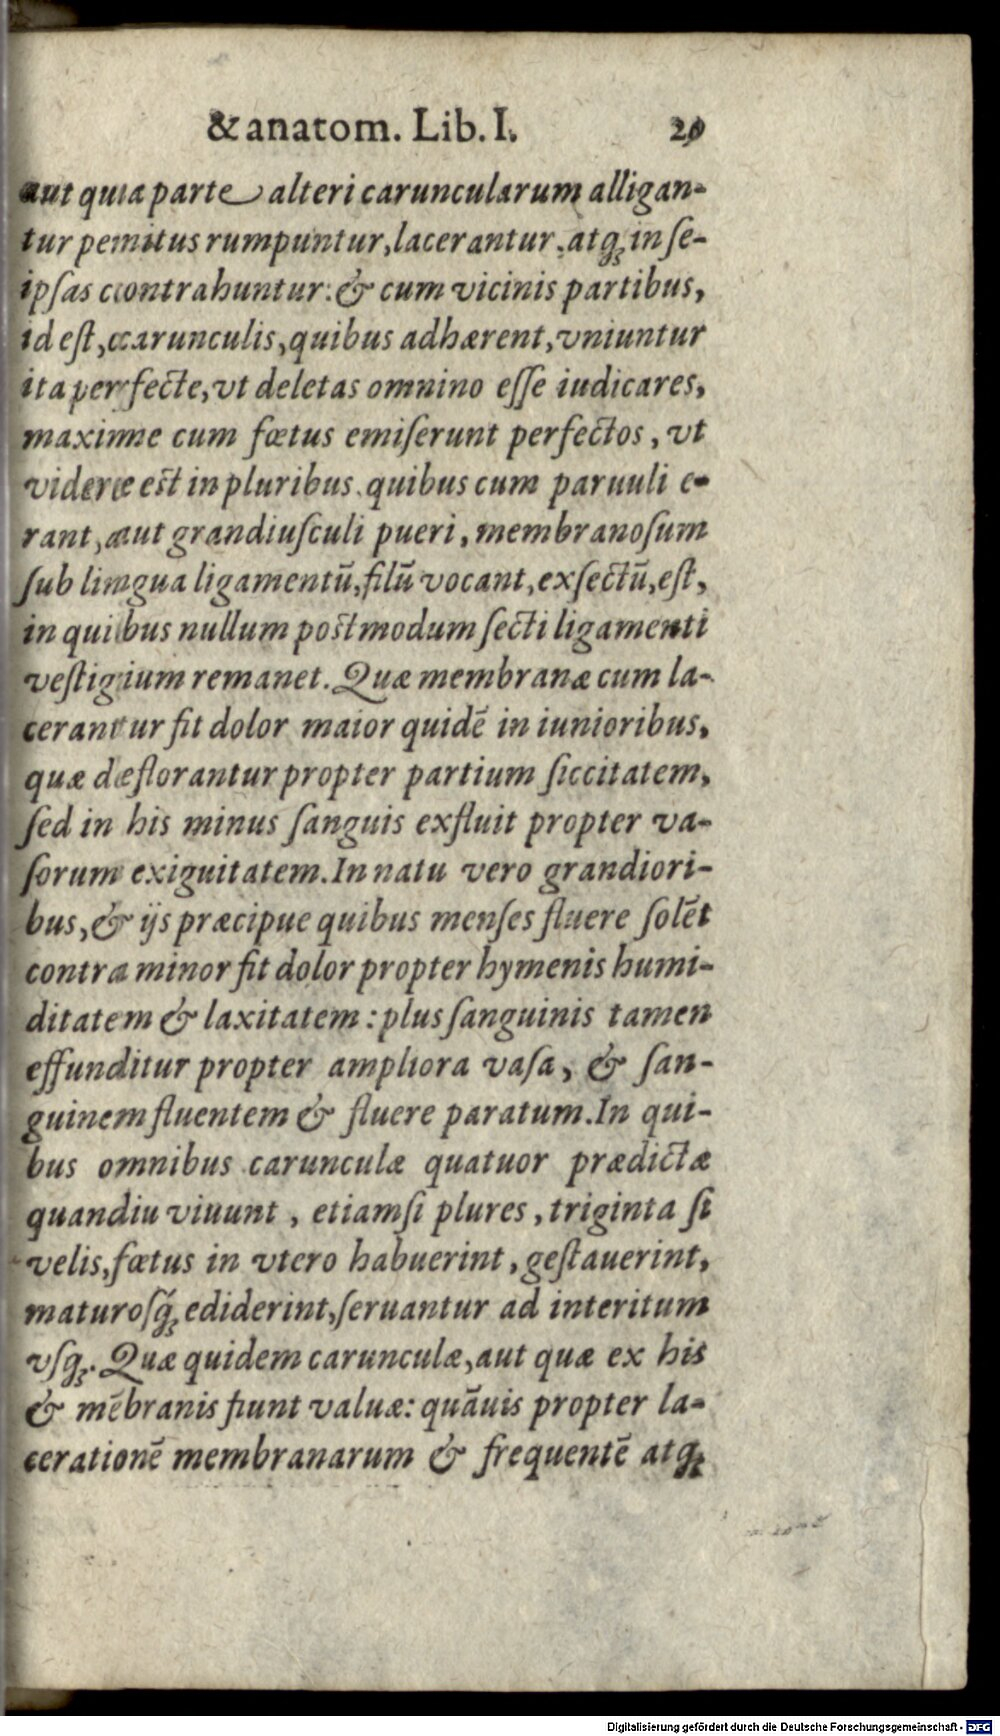 & anatom. Lib. I. 20
aut quia parte alteri caruncularum alligan-
tur penitus rumpuntur, lacerantur, atq; in se-
ipsas contrahuntur: & cum vicinis partibus,
id est, carunculis, quibus adhærent, vniuntur
ita perfecte, vt deletas omnino esse iudicares,
maxime cum fœtus emiserunt perfectos, vt
videre est in pluribus, quibus cum paruuli e-
rant, aut grandiusculi pueri, membranosum
sub lingua ligamentū, filū vocant, exsectū, est,
in quibus nullum postmodum secti ligamenti
vestigium remanet. Quæ membranæ cum la-
cerantur fit dolor maior quidē in iunioribus,
quæ dæflorantur propter partium siccitatem,
sed in his minus sanguis exfluit propter va-
sorum exiguitatem. In natu vero grandiori-
bus, & ijs præcipue quibus menses fluere solēt
contra minor fit dolor propter hymenis humi-
ditatem & laxitatem: plus sanguinis tamen
effunditur propter ampliora vasa, & san-
guinem fluentem & fluere paratum. In qui-
bus omnibus carunculæ quatuor prædictæ
quandiu viuunt, etiamsi plures, triginta si
velis, fœtus in vtero habuerint, gestauerint,
maturosq́; ediderint, seruantur ad interitum
vsq;. Quæ quidem carunculæ, aut quæ ex his
& mēbranis fiunt valuæ: quāuis propter la-
cerationē membranarum & frequentē atq;
Digitalisierung gefördert durch die Deutsche Forschungsgemeinschaft - DFG